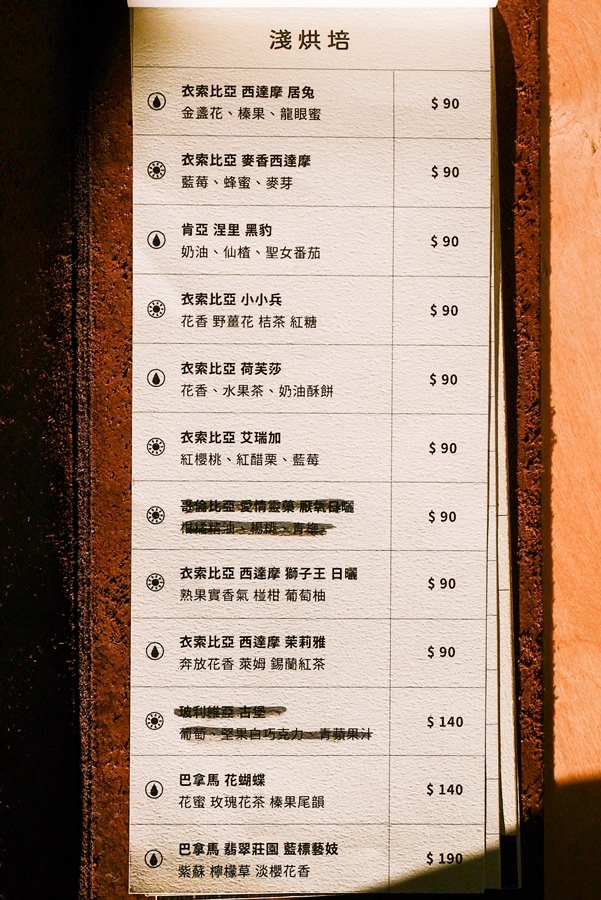 淺烘培
衣索比亞 西達摩 居兔
$ 90
金盞花、榛果、龍眼蜜
衣索比亞 麥香西達摩
$ 90
藍莓、蜂蜜、麥芽
肯亞 涅里 黑豹
$ 90
奶油、仙楂、聖女番茄
衣索比亞 小小兵
$ 90
花香 野薑花 桔茶 紅糖
衣索比亞 荷芙莎
$ 90
花香、水果茶、奶油酥餅
衣索比亞 艾瑞加
$ 90
紅櫻桃、紅醋栗、藍莓
哥倫比亞 愛情靈藥 厭氧日曬
$ 90
柑橘精油、楊桃、青梅
衣索比亞 西達摩 獅子王 日曬
$ 90
熟果實香氣 椪柑 葡萄柚
衣索比亞 西達摩 茉莉雅
$ 90
奔放花香 萊姆 錫蘭紅茶
玻利維亞 古堡
$ 140
葡萄、堅果白巧克力、青蘋果汁
巴拿馬 花蝴蝶
$ 140
花蜜 玫瑰花茶 榛果尾韻
巴拿馬 翡翠莊園 藍標藝妓
$ 190
紫蘇 檸檬草 淡櫻花香